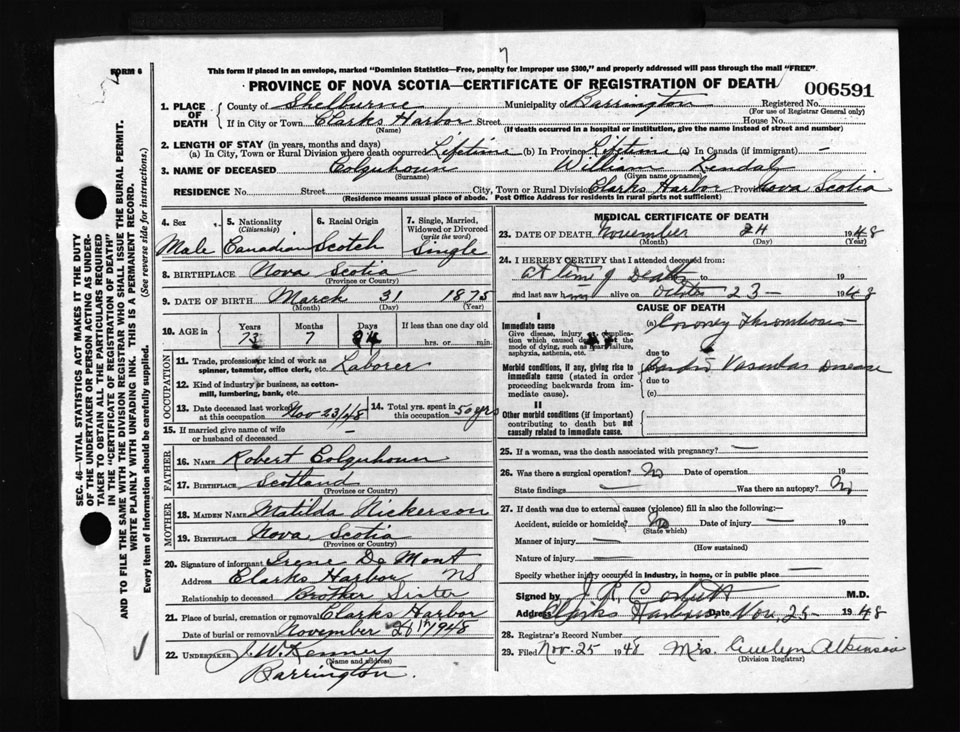 7
FORM 6
This form if placed in an envelope, marked "Dominion Statistics—Free, penalty for improper use $300," and properly addressed will pass through the mail "FREE"
PROVINCE OF NOVA SCOTIA—CERTIFICATE OF REGISTRATION OF DEATH
006591
1. PLACE OF DEATH { County of Shelburne Municipality of Barrington Registered No.
(For use of Registrar General only)
If in City or Town Clarks Harbor Street House No.
(Name) (If death occurred in a hospital or institution, give the name instead of street and number)
2. LENGTH OF STAY (in years, months and days)
(a) In City, Town or Rural Division where death occurred Lifetime (b) In Province Lifetime (c) In Canada (if immigrant) —
3. NAME OF DECEASED Colquhoun William Kendal
(Surname) (Given name or names)
RESIDENCE No. Street City, Town or Rural Division Clarks Harbor Province Nova Scotia
(Residence means usual place of abode. Post Office Address for residents in rural parts not sufficient)
4. Sex Male
5. Nationality (Citizenship) Canadian
6. Racial Origin Scotch
7. Single, Married, Widowed or Divorced (write the word) Single
8. BIRTHPLACE Nova Scotia
(Province or Country)
9. DATE OF BIRTH March 31 1875
(Month) (Day) (Year)
10. AGE in Years Months Days If less than one day old
73 7 24 hrs. or min.
OCCUPATION
11. Trade, profession or kind of work as spinner, teamster, office clerk, etc. Laborer
12. Kind of industry or business, as cotton-mill, lumbering, bank, etc.
13. Date deceased last worked at this occupation Nov 23/48
14. Total yrs. spent in this occupation 50 yrs
15. If married give name of wife or husband of deceased —
FATHER
16. NAME Robert Colquhoun
17. BIRTHPLACE Scotland
(Province or Country)
MOTHER
18. MAIDEN NAME Matilda Nickerson
19. BIRTHPLACE Nova Scotia
(Province or Country)
20. Signature of informant Irene De Mont
Address Clarks Harbor NS
Relationship to deceased Brother Sister
21. Place of burial, cremation or removal Clarks Harbor
Date of burial or removal November 26th 1948
22. UNDERTAKER J. W. Kenney
(Name and address)
Barrington.
MEDICAL CERTIFICATE OF DEATH
23. DATE OF DEATH November 24 1948
(Month) (Day) (Year)
24. I HEREBY CERTIFY that I attended deceased from:
at time of Death to 19
and last saw him alive on October 23 — 1948
CAUSE OF DEATH
I
Immediate cause
Give disease, injury or complication which caused death, not the mode of dying, such as heart failure, asphyxia, asthenia, etc.
(a) Coronary Thrombosis
due to
Morbid conditions, if any, giving rise to immediate cause (stated in order proceeding backwards from immediate cause).
Cardio Vascular Disease
due to
(c)
II
Other morbid conditions (if important) contributing to death but not causally related to immediate cause.
25. If a woman, was the death associated with pregnancy? —
26. Was there a surgical operation? No Date of operation 19
State findings — Was there an autopsy? No
27. If death was due to external causes (violence) fill in also the following:—
Accident, suicide or homicide? No Date of injury — 19
(State which)
Manner of injury —
(How sustained)
Nature of injury —
Specify whether injury occurred in industry, in home, or in public place —
Signed by M.D.
Address Clarks Harbor Date Nov. 25— 1948
28. Registrar's Record Number
29. Filed Nov. 25 1948 Mrs. Evelyn Atkinson
(Division Registrar)
SEC. 46—VITAL STATISTICS ACT MAKES IT THE DUTY
OF THE UNDERTAKER OR PERSON ACTING AS UNDER-
TAKER TO OBTAIN ALL THE PARTICULARS REQUIRED
IN THE "CERTIFICATE OF REGISTRATION OF DEATH"
AND TO FILE THE SAME WITH THE DIVISION REGISTRAR WHO SHALL ISSUE THE BURIAL PERMIT.
WRITE PLAINLY WITH UNFADING INK. THIS IS A PERMANENT RECORD.
Every item of information should be carefully supplied. (See reverse side for instructions.)